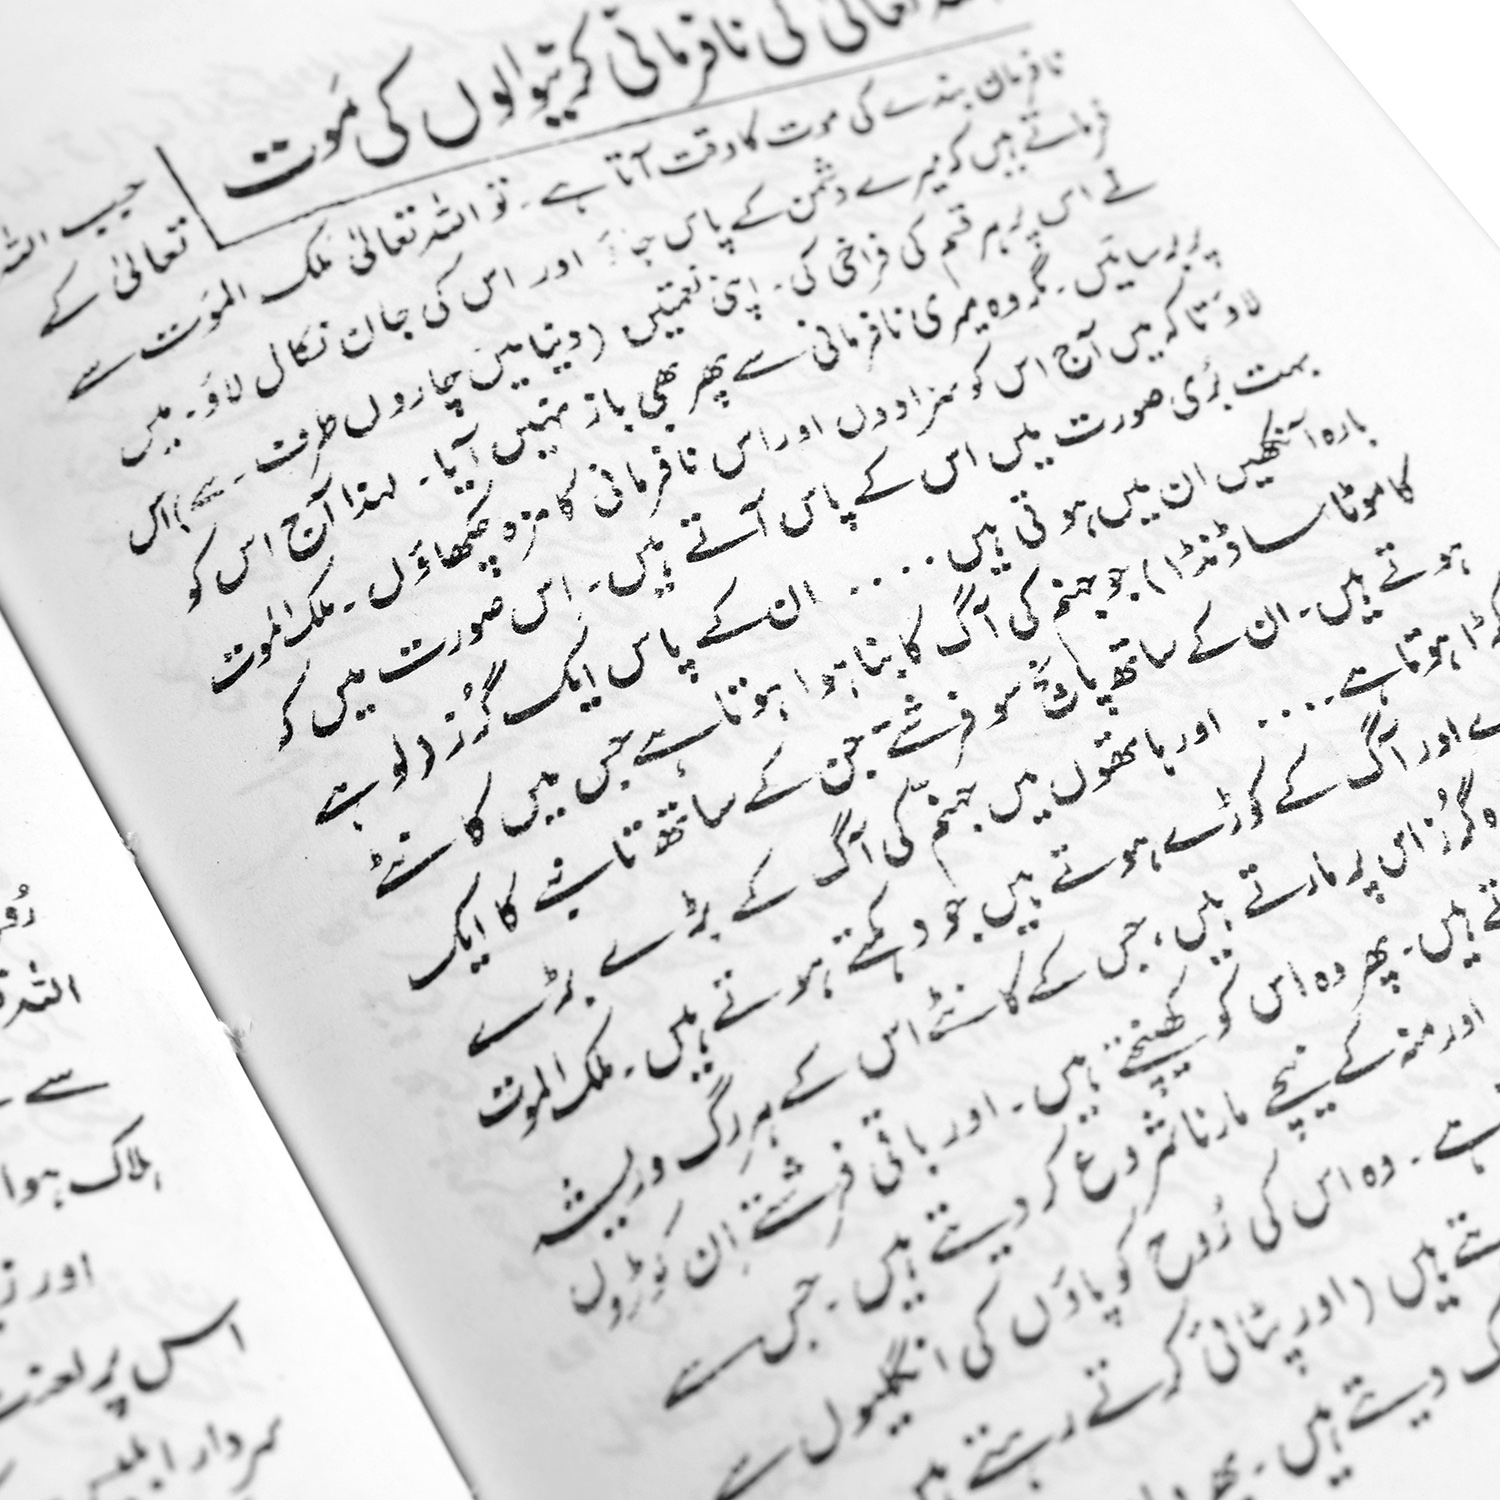 تعالیٰ کی نافرمانی کرنیوالوں کی مَوت
جب اللہ
تعالیٰ کے
نافرمان بندے کی موت کا وقت آتا ہے۔ تو اللہ تعالیٰ مَلک المَوت سے
فرماتے ہیں کہ میرے دشمن کے پاس جاؤ اور اس کی جان نکال لاؤ۔ میں
نے اس پر ہر قسم کی فراخی کی۔ اپنی نعمتیں (دنیا میں چاروں طرف سے) اس
پر برسائیں۔ مگر وہ میری نافرمانی سے پھر بھی باز نہیں آیا۔ لہذا آج اس کو
لاؤ تاکہ میں آج اس کو سزا دوں اور اس نافرمانی کا مزہ چکھاؤں۔ ملک الموت
بہت بُری صورت میں اس کے پاس آتے ہیں۔ اس صورت میں کہ
بارہ آنکھیں ان میں ہوتی ہیں.... ان کے پاس ایک گُرز (لوہے
کا موٹا سا ڈنڈا) جو جہنم کی آگ کا بنا ہوا ہوتا ہے جس میں کانٹے
ہوتے ہیں۔ ان کے ساتھ پانچ سو فرشتے جن کے ساتھ تانبے کا ایک
ہوتا ہے.... اور ہاتھوں میں جہنم کی آگ کے بڑے بڑے
اور آگ کے کوڑے ہوتے ہیں جو دہکتے ہوتے ہیں۔ ملک الموت
گُرز اس پر مارتے ہیں، جس کے کانٹے اس کے ہر رگ و ریشہ
ہیں۔ پھر وہ اس کو کھینچتے ہیں۔ اور باقی فرشتے اِن کوڑوں
اور منہ کے نیچے مارنا شروع کر دیتے ہیں۔ جس سے
ہے۔ وہ اس کی رُوح کو پاؤں کی انگلیوں سے
ہیں (اور پٹائی کرتے رہتے ہیں
دیتے ہیں۔
اللہ
سے
ہلاک ہوا
اور
اس پر لعنت
سردار ابلیس